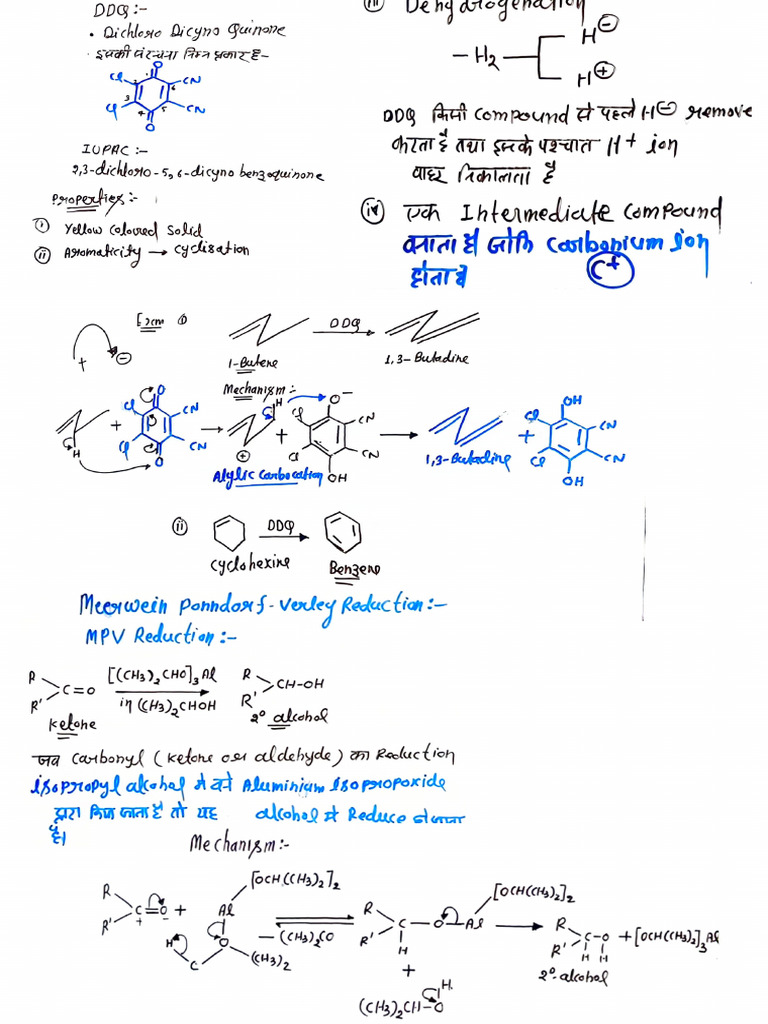 DDQ:-
• Dichloro Dicyno Quinone
• इसकी संरचना निम्न प्रकार है-
O
Cl
CN
1
2
3
4
5
6
Cl
CN
O
IUPAC :-
2,3-dichloro-5,6-dicyno benzoquinone
Properties:-
(i) Yellow coloured solid
(ii) Aromaticity → Cyclisation
(iii) Dehydrogenation
- H2
H⊖
H⊕
DDQ किसी compound से पहले H⊖ remove
करता है तथा इसके पश्चात H+ ion
बाहर निकालता है
(iv) एक Intermediate compound
बनाता है जोकि carbonium ion
होता है
C+
+ ⊖
(i)
DDQ
1-Butene
1,3-Butadine
Mechanism:-
H
+
O
Cl
CN
Cl
CN
O
H
⊕
Alylic Carbocation
+
O-
Cl
CN
Cl
CN
OH
1,3-Butadine
+
OH
Cl
CN
Cl
CN
OH
(ii)
DDQ
Cyclohexine
Benzene
Meerwein Ponndorf-Verley Reduction:-
MPV Reduction:-
R
R'
C=O
[(CH3)2CHO]3Al
in (CH3)2CHOH
R
R'
CH-OH
ketone
2° alcohol
जब Carbonyl (ketone or aldehyde) का Reduction
isopropyl alcohol में बने Aluminium isopropoxide
द्वारा किया जाता है तो यह alcohol में Reduce हो जाता
है।
Mechanism:-
R
R'
C=O
+
-
+
[OCH(CH3)2]2
Al
O
H
C
(CH3)2
-(CH3)2CO
R
R'
C-O-Al
H
[OCH(CH3)2]2
+
(CH3)2CH-O
H
R
R'
C-O
H H
2°-alcohol
+[OCH(CH3)2]3Al